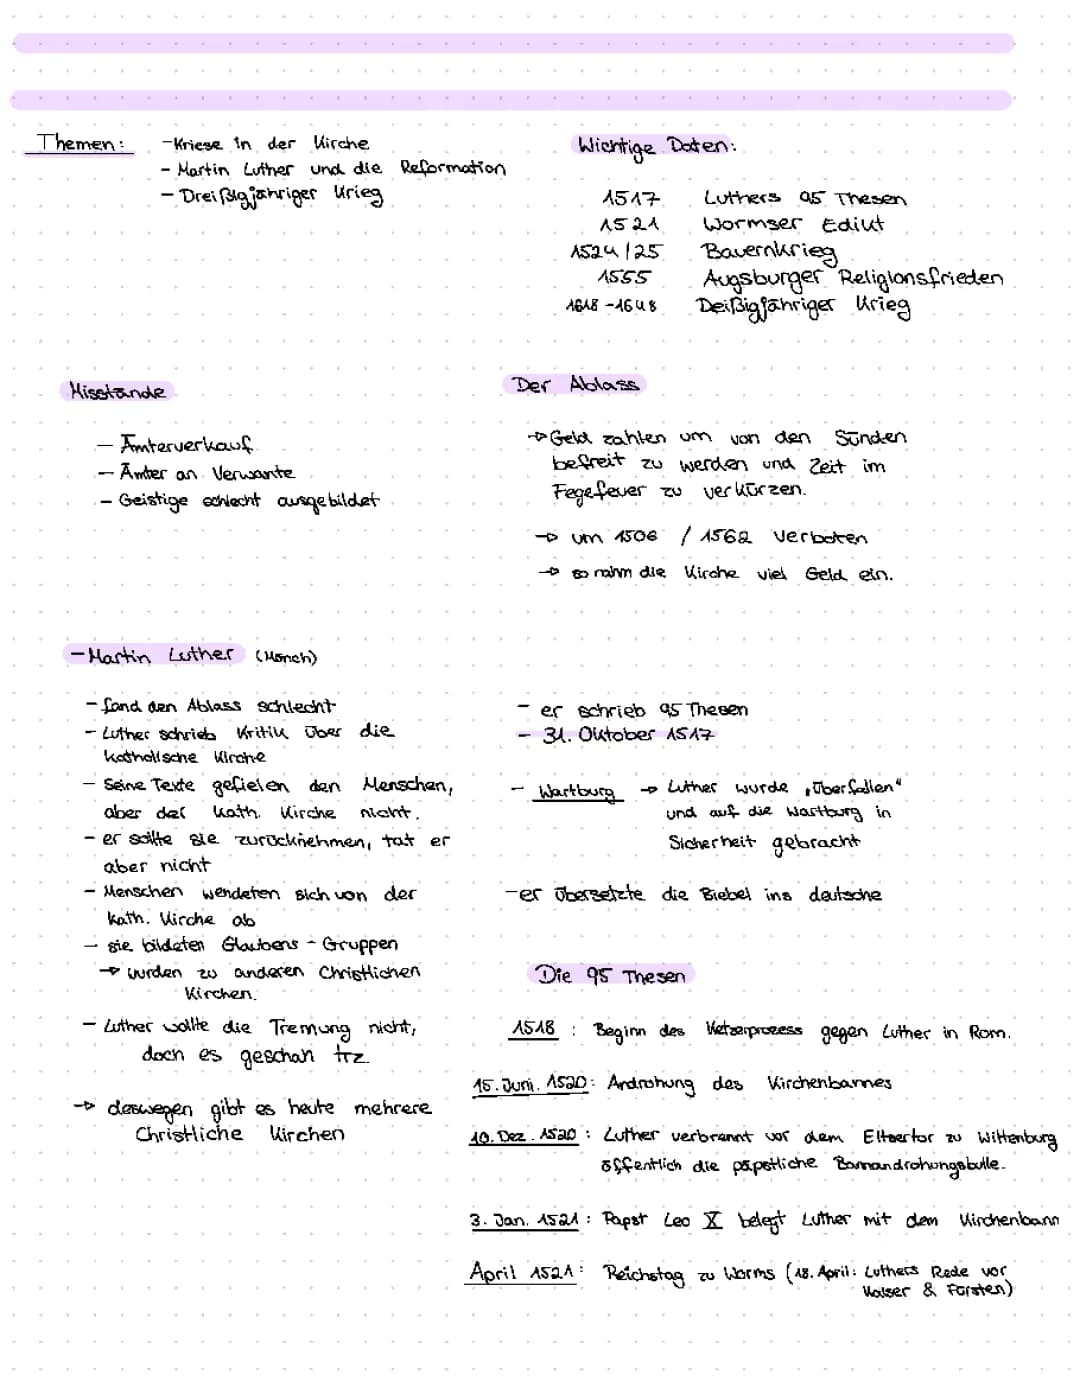 Themen:
-Kriese in der Kirche
- Martin Luther und die Reformation
- Dreißigjähriger Krieg
Wichtige Daten:
1517 Luthers 95 Thesen
1521 Wormser Edikt
1524/25 Bauernkrieg
1555 Augsburger Religionsfrieden
1618-1648 Deißigjähriger Krieg
Misstände
- Ämterverkauf
- Ämter an Verwante
- Geistige schlecht ausgebildet
Der Ablass
→ Geld zahlen um von den Sünden
befreit zu werden und Zeit im
Fegefeuer zu verkürzen.
→ um 1506 / 1562 verboten
→ so nahm die Kirche viel Geld ein.
- Martin Luther (Mönch)
- fand den Ablass schlecht
- Luther schrieb Kritik über die
katholische Kirche
- Seine Texte gefielen den Menschen,
aber der kath. Kirche nicht.
- er sollte sie zurücknehmen, tat er
aber nicht
- Menschen wendeten sich von der
kath. Kirche ab
- sie bildeten Glaubens - Gruppen
→ wurden zu anderen Christlichen
Kirchen.
- Luther wollte die Trennung nicht,
doch es geschah trz.
→ deswegen gibt es heute mehrere
Christliche Kirchen
- er schrieb 95 Thesen
- 31. Oktober 1517
- Wartburg → Luther wurde „überfallen"
und auf die Wartburg in
Sicherheit gebracht
- er übersetzte die Biebel ins deutsche
Die 95 Thesen
1518 : Beginn des Ketzerprozess gegen Luther in Rom.
15. Juni. 1520: Androhung des Kirchenbannes
10. Dez. 1520 : Luther verbrannt vor dem Elstertor zu Wittenburg
öffentlich die päpstliche Bannandrohungsbulle.
3. Jan. 1521 : Papst Leo X belegt Luther mit dem Kirchenbann
April 1521: Reichstag zu Worms (18. April: Luthers Rede vor
Kaiser & Fürsten)